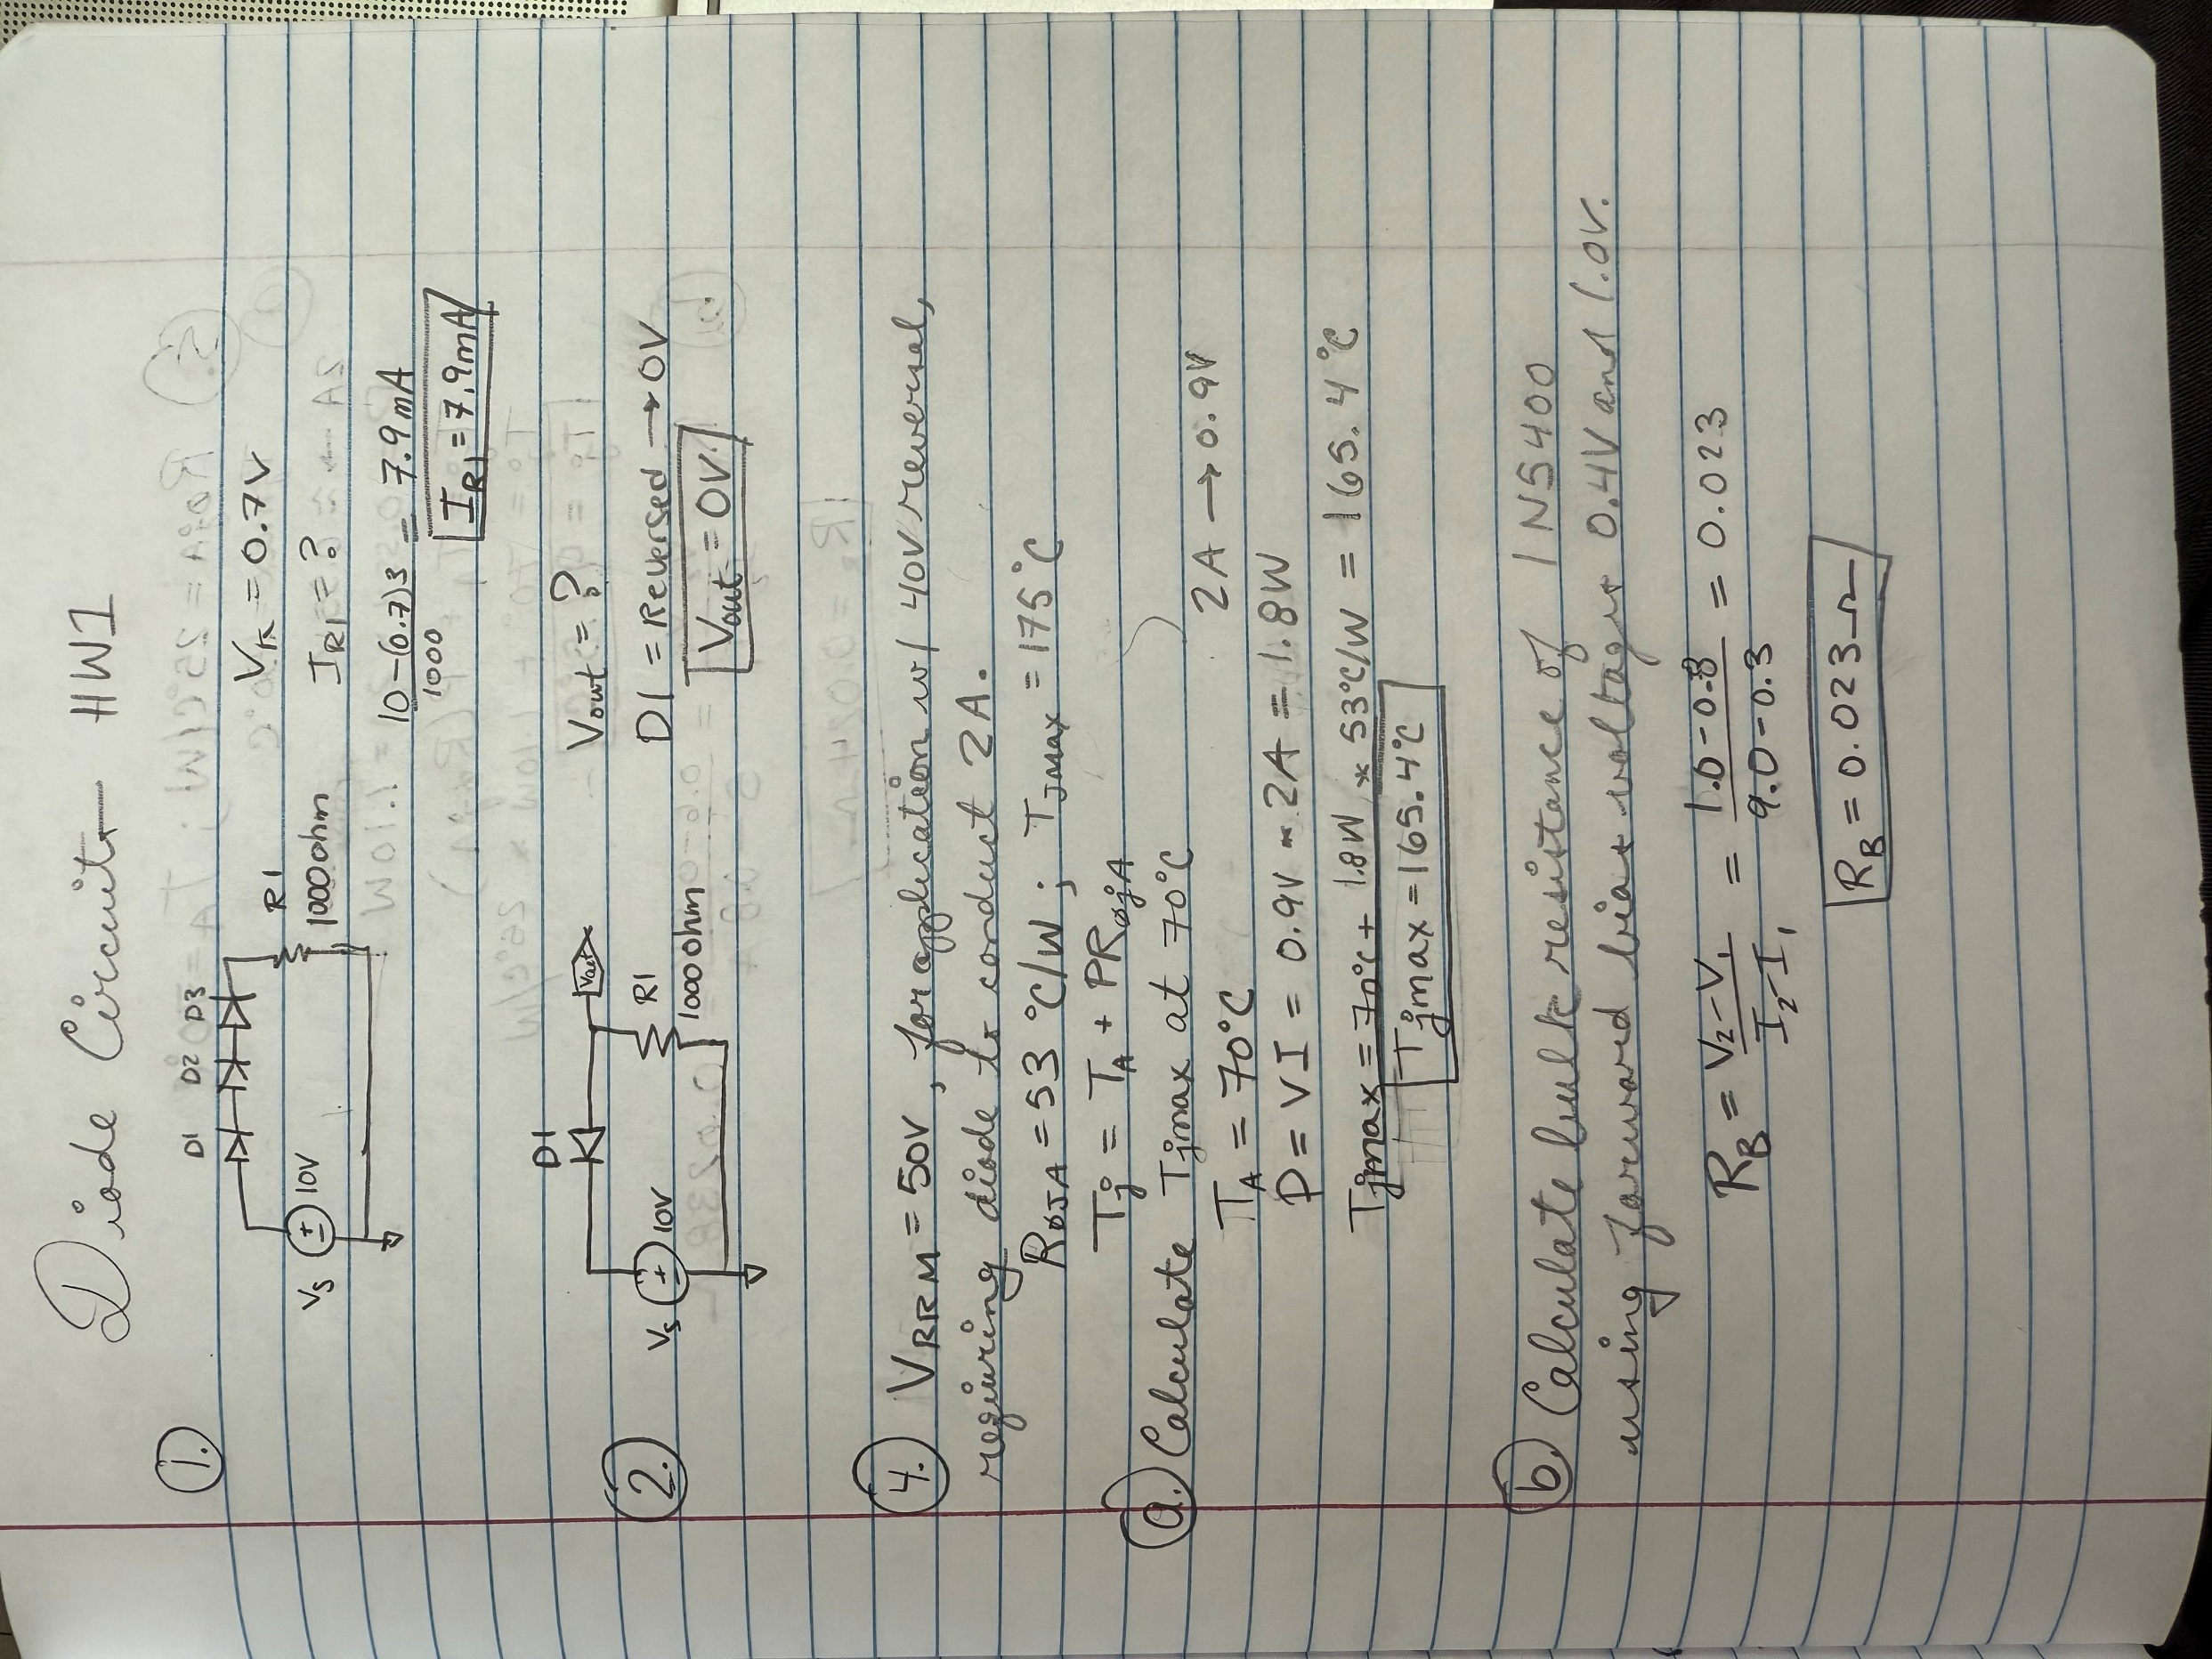 Diode Circuits HW1
1.
D1 D2 D3
R1
1000ohm
Vs
10V
VK = 0.7V
IR1 = ?
10-(0.7)3 = 7.9mA
1000
IR1 = 7.9mA
2.
D1
Vout
R1
1000ohm
Vs
10V
Vout = ?
D1 = Reversed → 0V
Vout = 0V
4. VRRM = 50V, for application w/ 40V reversal,
requiring diode to conduct 2A.
RθJA = 53 °C/W; TJMAX = 175°C
Tj = TA + PRθjA
a. Calculate Tjmax at 70°C
TA = 70°C
2A → 0.9V
P = VI = 0.9V * 2A = 1.8W
Tjmax = 70°C + 1.8W * 53°C/W = 165.4°C
Tjmax = 165.4°C
b. Calculate bulk resistance of 1N5400
using forward bias voltages 0.4V and 1.0V.
RB = V2-V1 = 1.0-0.8 = 0.023
I2-I1 9.0-0.3
RB = 0.023Ω